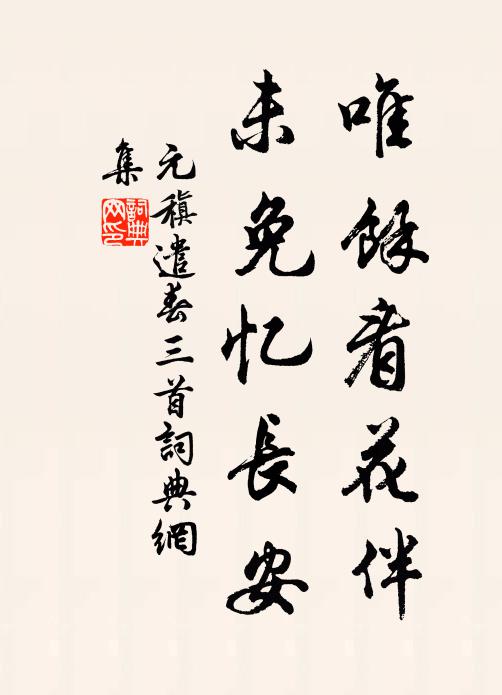 唯餘看花伴
未免忆長安
元稹遣春三首詞典網
集
詞典
网印